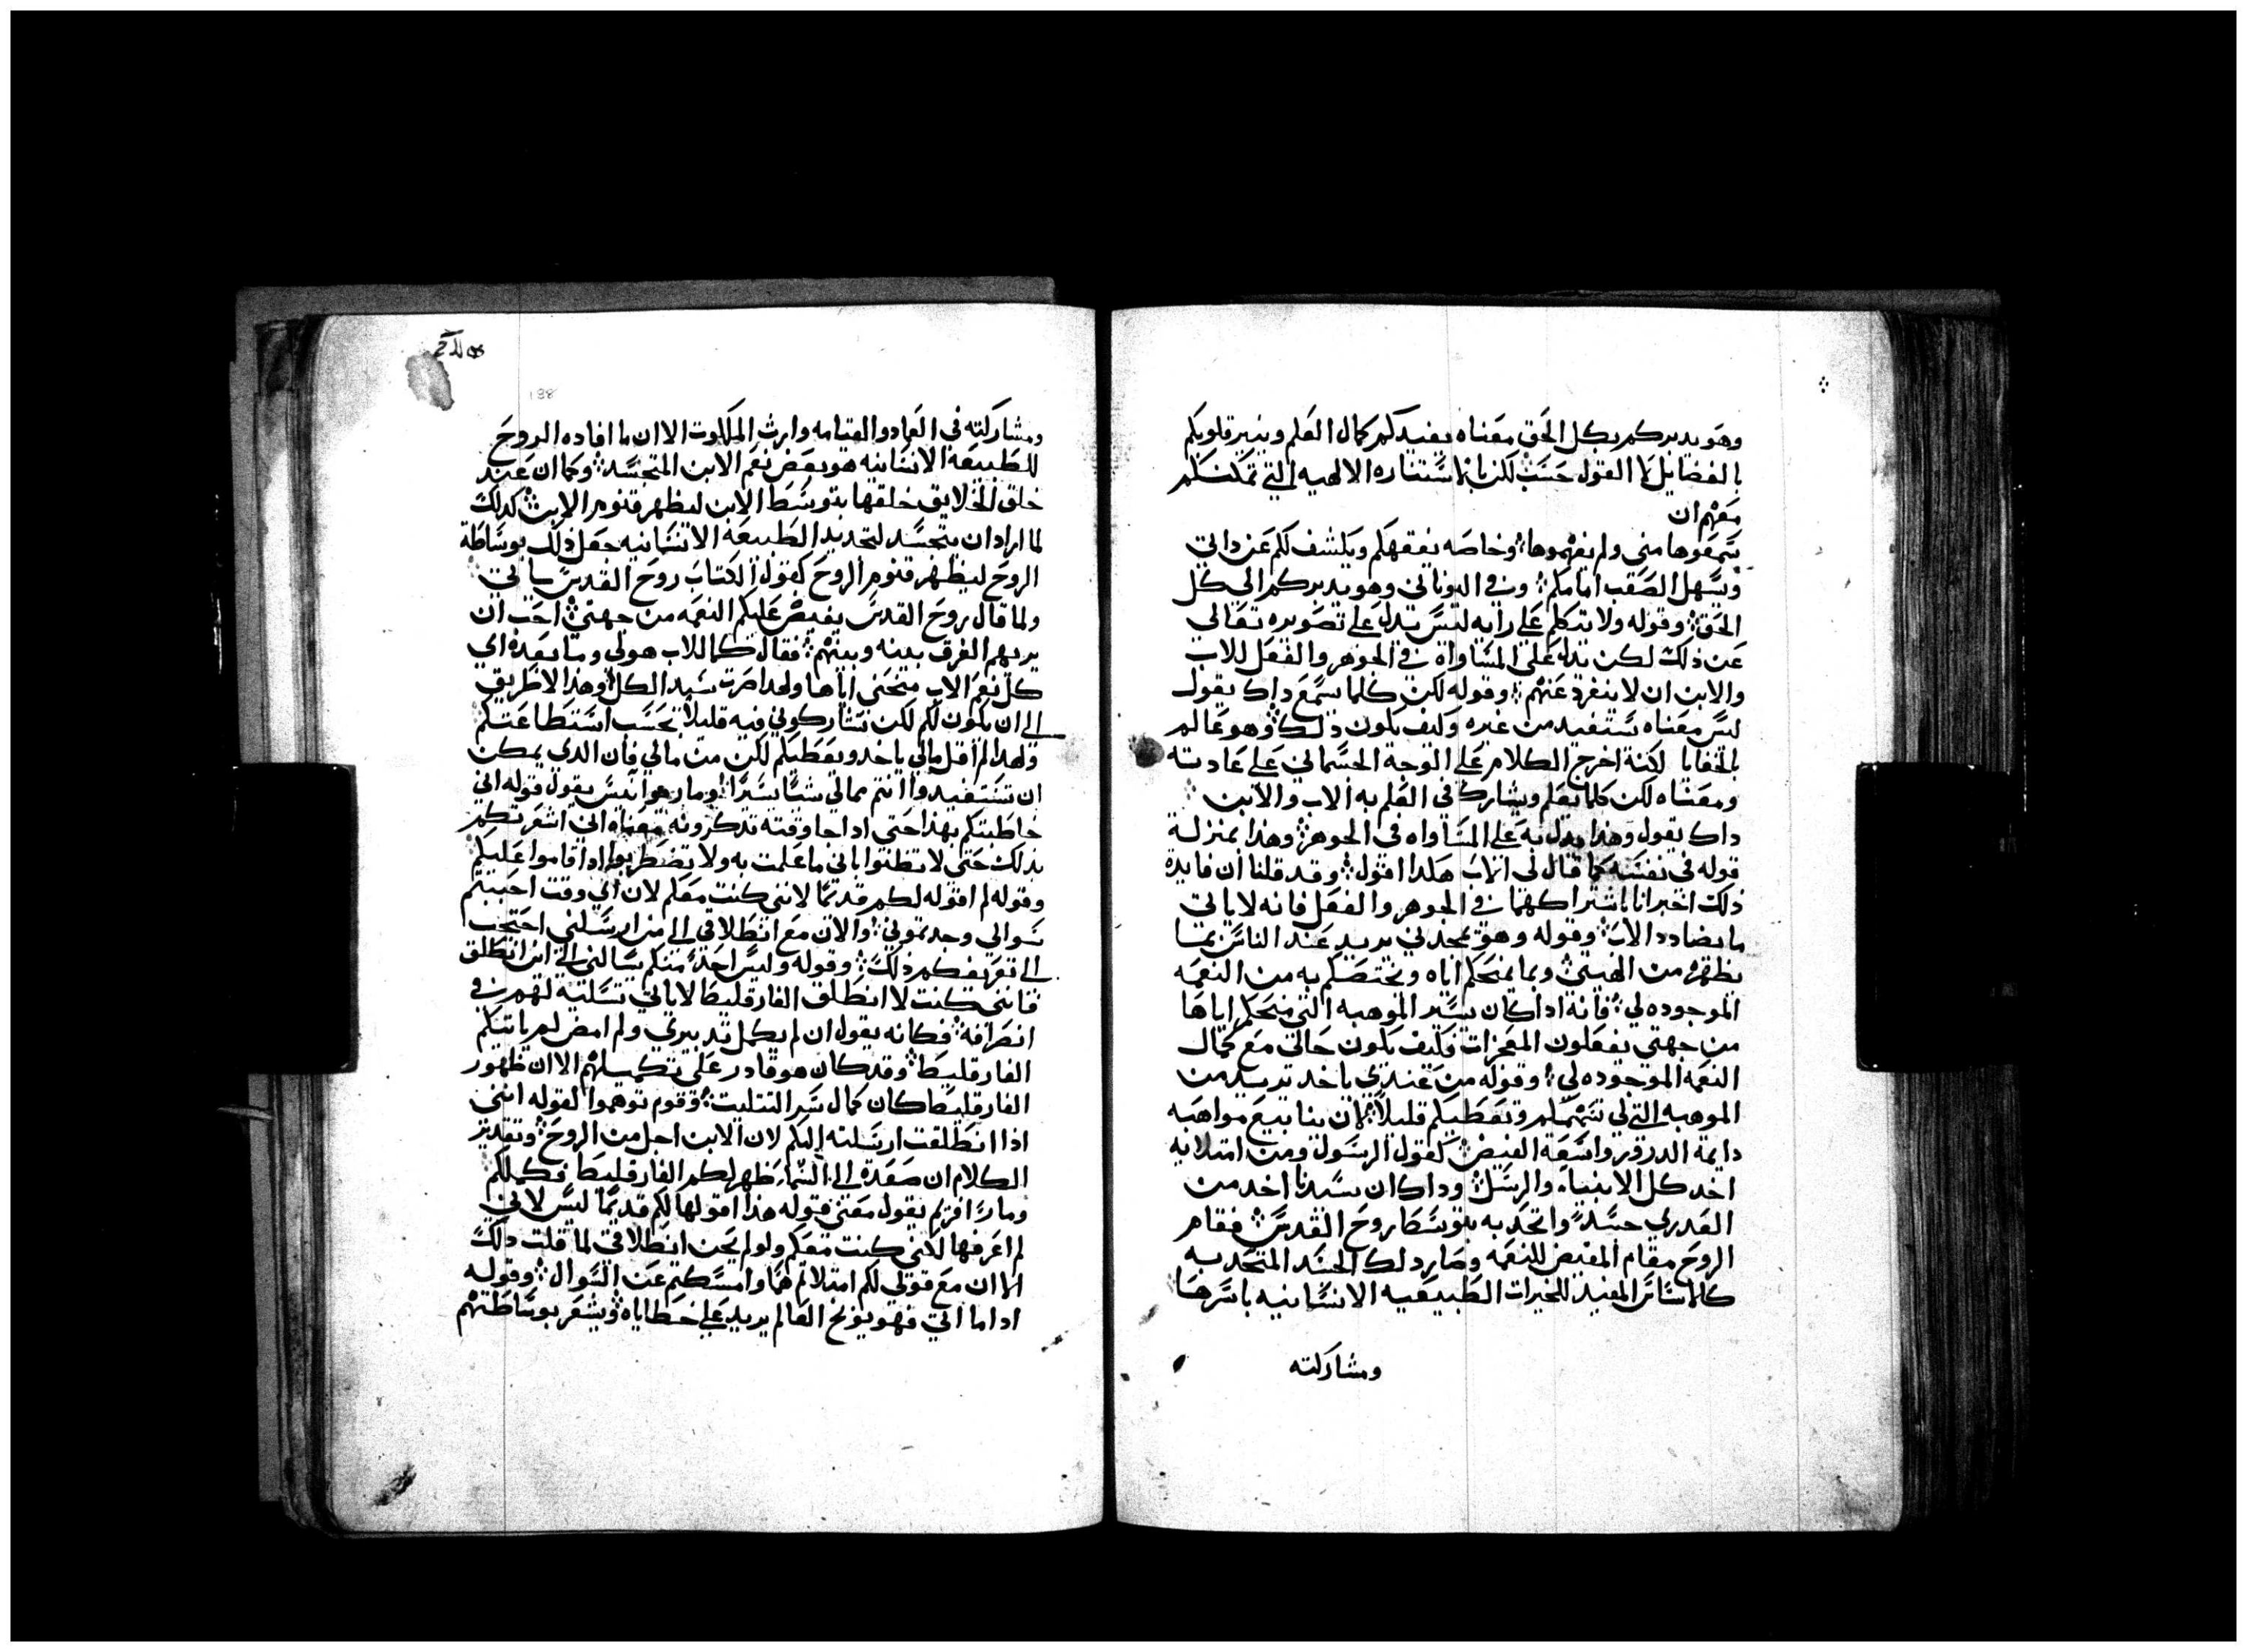 وهو يدبركم بكل الحق معناه يفيدكم كمال العلم وينير قلوبكم
بالفضايل لا القول حسب لكن بالاستناره الالهيه التي تمكنكم
معهم ان
تسمعوها مني ولم تفهموها وخاصه يفقهكم ويكشف لكم عن داتي
ويسهل الصعب امامكم وفي اليوناني وهو يدبركم الى كل
الحق وقوله ولا يتكلم علي رايه ليس يدل علي تصويره تعالى
عن ذلك لكن يدل على المساواه في الجوهر والفعل للاب
والابن ان لا ينفرد عنهم وقوله لكن كلما يسمع داك يقول
ليس معناه يستفيد من غيره وكيف يكون ذلك وهو عالم
بالخفايا لكنه اخرج الكلام على الوجه الجسماني علي عادته
ومعناه لكن كلما يعلم ويشارك في العلم به الاب والابن
داك يقول وهذا يدل به علي المساواه في الجوهر وهذا بمنزلة
قوله في نفسه كما قال لي الاب هكدا اقول وقد قلنا ان فايدة
ذلك اخبرانا باشتراكهما في الجوهر والفعل فانه لا ياتي
ما يضادد الاب وقوله وهو يمجدني يريد عند الناس بما
يظهره من الهيتي وبما يمنحكم اياه ويختصكم به من النعمه
الموجوده لي فانه اداكان يسير الموهبه التي منحكم اياها
من جهتي يفعلون المعجزات فكيف يكون حالي مع كمال
النعمه الموجوده لي وقوله من عندي ياخد يريد من
الموهبه التي لي ويعطيكم قليلا لان ينابيع مواهبه
دايمة الدرور واسعه الفيض كقول الرسول ومن امتلايه
اخد كل الانبياء والرسل وداكان سيدنا اخد من
العدري جسدا واتحد به بتوسط روح القدس فقام
الروح مقام المفيض للنعمه وصار دلك الجسد المتحد به
كالاساس المفيد للخيرات الطبيعيه الانسانيه باسرها
ومشاركته
ومشاركته في العماد والقيامه وارث الملكوت الا ان ما افاده الروح
للطبيعه الانسانيه هو بعض نعم الابن المتجسد وكما ان عند
خلق الخلايق خلقها بتوسط الابن ليظهر قنوم الابن كدلك
لما اراد ان يتجسد لتجديد الطبيعه الانسانيه جعل ذلك بوساطة
الروح ليظهر قنوم الروح كقول الكتاب روح القدس ياتي
ولما قال روح القدس يفيض عليكم النعمه من جهتي احب ان
يريهم الفرق بينه وبينهم فقال كلما للاب هو لي وما بعده اي
كل نعم الاب منحني اياها ولهدا صرت سيد الكل وهدا لا طريق
الي ان يكون لكم لكن تشاركوني فيه قليلا بحسب استطاعتكم
ولهدا لم اقل مالي ياخد ويعطيكم لكن من مالي فان الدي يمكن
ان تستفيدوا انتم ممالي شيا يسيرا ومار يقول قوله اني
خاطبتكم بهدا حتى اداجا وقته تدكرونه معناه اني اشعرتكم
بدلك حتى لا تظنوا باني ما علمت به ولا تضطربوا ادا قاموا عليكم
وقوله لم اقوله لكم قديما لانني كنت معكم لان اي وقت احببتم
سوالي وجدتموني والان مع انطلاقي الي من ارسلني احتجت
الي تعريفكم ذلك وقوله وليس احد منكم يسالني الي اين انطلق
فانني كنت لا انطلق الفارقليط لا ياتي تسلية لهم في
انصرافه فكانه يقول ان لم يكمل تدبيري ولم امض لم ياتيكم
الفارقليط وقد كان هو قادر على تكميلهم الا ان ظهور
الفارقليط كان كمال سر التتليت وقوم توهموا لقوله انني
اذا انطلقت ارسلته اليكم لان الابن اجل من الروح وتقدير
الكلام ان صعدة الي السما ظهر لكم الفارقليط وكملكم
ومار افريم يقول معنى قوله هدا اقولها لكم قديما ليس لاني
لم اعرفها لانني كنت معكم ولو لم يحن انطلاقي لما قلت دلك
الا ان مع قولي لكم امتلاتم هما وامسكتم عن السوال وقوله
اداما اتي فهو يوبخ العالم يريد علي خطاياه ويشعر بوساطتهم